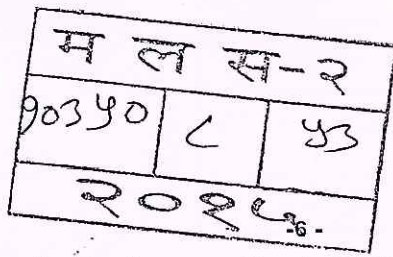 म ल स-२
१०३५० ८ ५३
२०१५
-6-